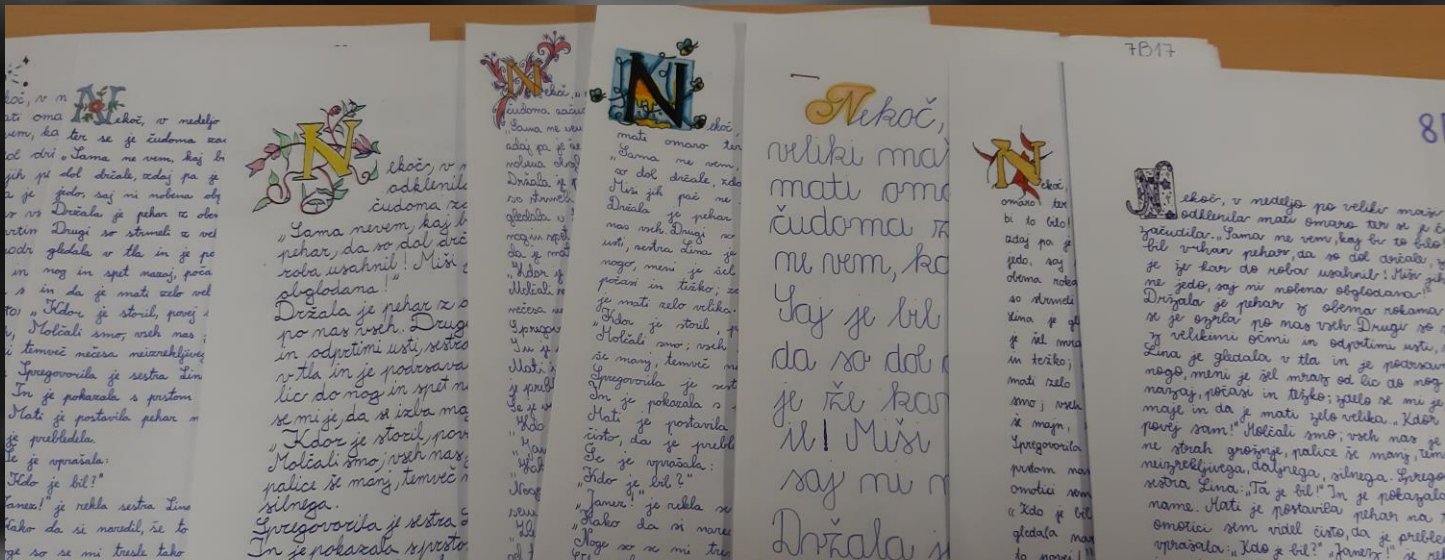 koč, v n
ati oma
vem, ka
Nekoč, v nedeljo
ter se je čudoma zač
„Sama ne vem, kaj bi
dol držale, zdaj pa je
jedo, saj ni nobena obg
Držala je pehar z obe
Drugi so strmeli z vel
gledala v tla in je po
in nog in spet nazaj, poča
in da je mati zelo vel
„Kdor je storil, povej
Molčali smo, vseh nas
temveč nečesa neizrekljiveg
Spregovorila je sestra Lin
In je pokazala s prstom
Mati je postavila pehar n
je prebledela.
Še je vprašala:
„Kdo je bil?“
„Janez!“ je rekla sestra Lina
„Kako da si naredil, še to
ge so se mi tresle tako
Nekoč, v n
odklenila
čudoma za
„Sama nevem, kaj b
pehar, da so dol drž
roba usahnil! Miši
obglodana!“
Držala je pehar z o
po nas vseh. Drug
in odprtimi usti, sestra
v tla in je podrsava
lic do nog in spet n
se mi je, da se izba ma
„Kdor je storil, pov
Molčali smo; vseh nas
palice še manj, temveč n
silnega.
Spregovorila je sestra L
In je pokazala s prsto
Nekoč,
čudoma začu
„Sama ne vem
zdaj pa je
nobena obgl
Držala je p
so strmeli
gledala v
nog in spet
da je mat
„Kdor j
Molčali
nečesa n
Spregov
In je
Mati
je preb
Še je v
„Kdo
Nekoč,
mati omaro ter
„Sama ne vem,
so dol držale, zda
Miši jih pač ne
Držala je pehar
nas vseh. Drugi so
usti, sestra Lina je
nogo, meni je šel
počasi in težko; zd
je mati zelo velika.
„Kdor je storil, p
Molčali smo; vseh
še manj, temveč n
Spregovorila je sest
In je pokazala s
Mati je postavila
čisto, da je prebl
Še je vprašala:
„Kdo je bil?“
„Janez!“ je rekla se
„Kako da si nare
Noge so se mi tres
Nekoč,
veliki maš
mati oma
čudoma z
ne vem, ka
Saj je bil
da so dol
je že kar
il! Miši
saj ni n
Držala j
Nekoč,
omaro ter
bi to bilo!
zdaj pa je
jedo, saj
obema roka
so strmeli
Lina je gl
je šel mra
in težko;
mati zelo
smo; vseh
še manj,
Spregovorila
prstom na
omotici sem
„Kdo je bil
gledala na
to povej!“
7B17
8
Nekoč, v nedeljo po veliki maši
odklenila mati omaro ter se je č
začudila. „Sama ne vem, kaj bi to bilo
bil vrhan pehar, da so dol držale, z
je že kar do roba usahnil! Miši jih
ne jedo, saj ni nobena obglodana!“
Držala je pehar z obema rokama
se je ozrla po nas vseh. Drugi so s
z velikimi očmi in odprtimi usti,
Lina je gledala v tla in je podrsava
nogo, meni je šel mraz od lic do nog
nazaj, počasi in težko; zdelo se mi je
maje in da je mati zelo velika. „Kdor
povej sam!“ Molčali smo; vseh nas je
ne strah grožnje, palice še manj, tem
neizrekljivega, daljnega, silnega. Sprego
sestra Lina: „Ta je bil!“ In je pokazala
name. Mati je postavila pehar na
omotici sem videl čisto, da je preble
vprašala: „Kdo je bil?“ „Janez!“ je